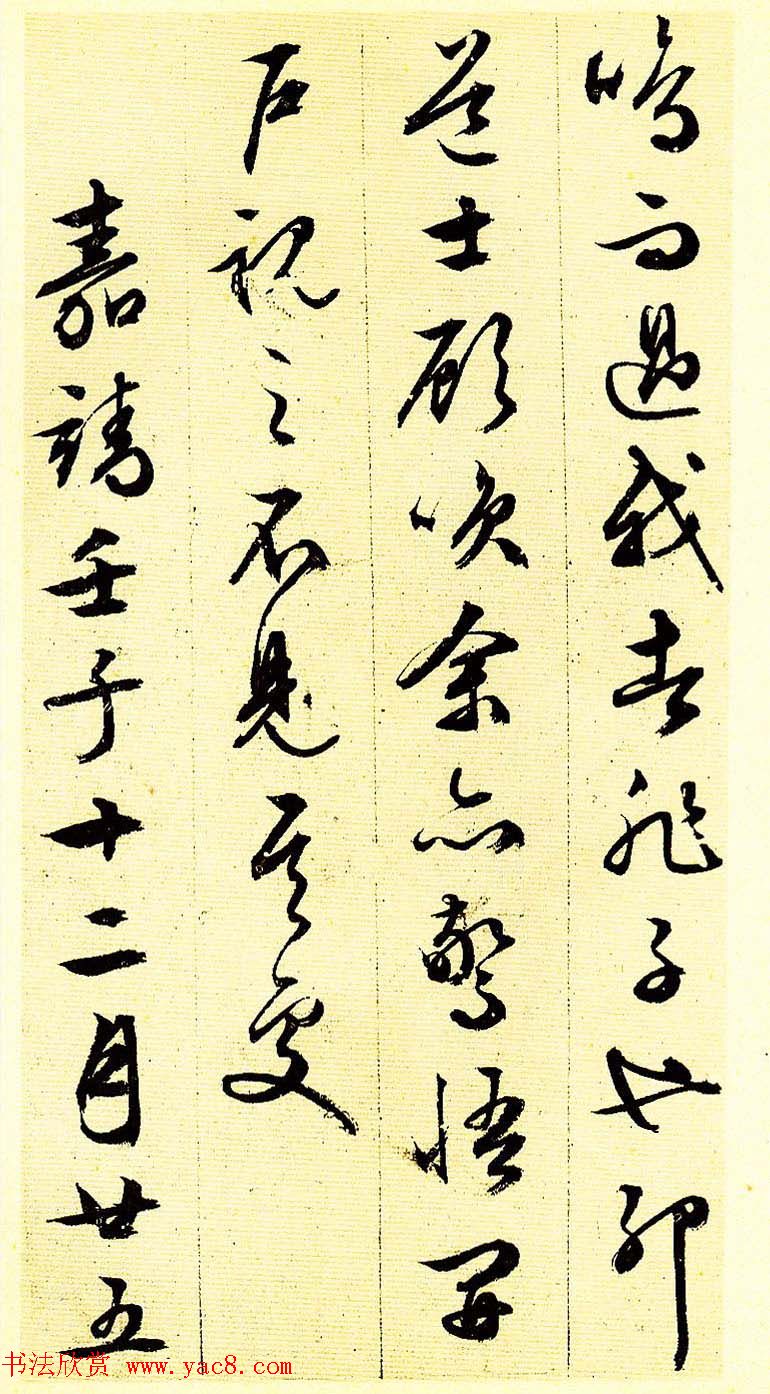 鳴而過我者非子也邪
道士顧笑余亦驚悟開
户視之不見其處
嘉靖壬子十二月廿五
书法欣赏 www.yac8.com